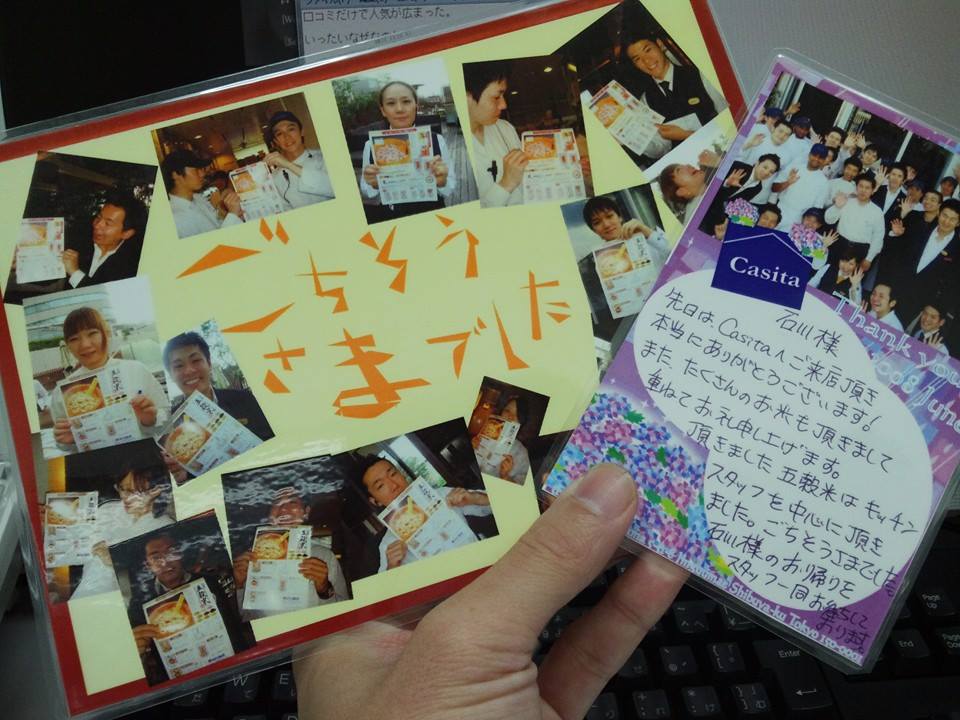 口コミだけで人気が広まった。
ごちそう
さまでした
Casita
石川様
先日は、Casitaへご来店頂き
本当にありがとうございます!
また、たくさんのお米も頂きまして
重ねてお礼申し上げます。
頂きました五穀米はキッチン
スタッフを中心に頂き
ました。ごちそうさまでした。
石川様のお帰りを
スタッフ一同お待ちして
おります。
Thank you
2008 June
Shibuya-ku Tokyo 150-0001
Page Up
End
Page Down
W
E